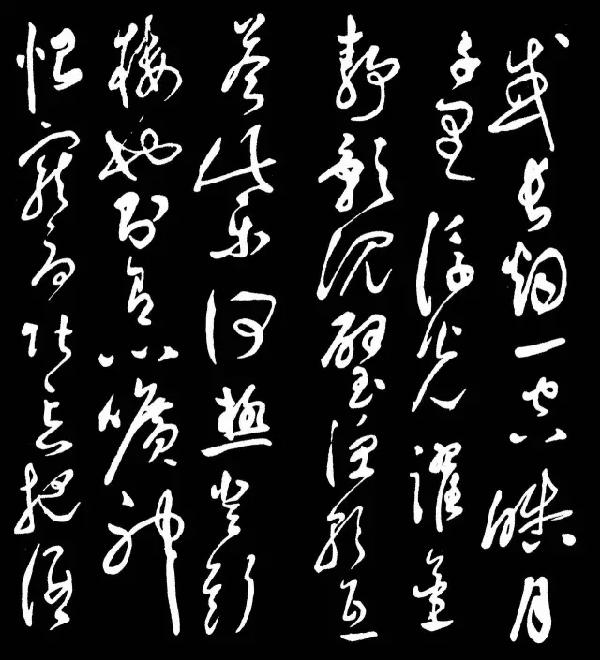 或長烟一空皓月
千里浮光躍金
靜影沉璧漁歌互
答此樂何極登斯
樓也則有心曠神
怡寵辱皆忘把酒